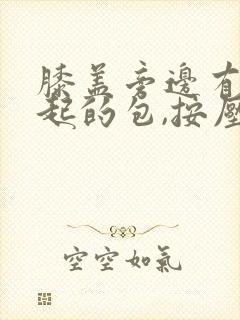 膝盖旁边有
起的包,按压
空空如氣